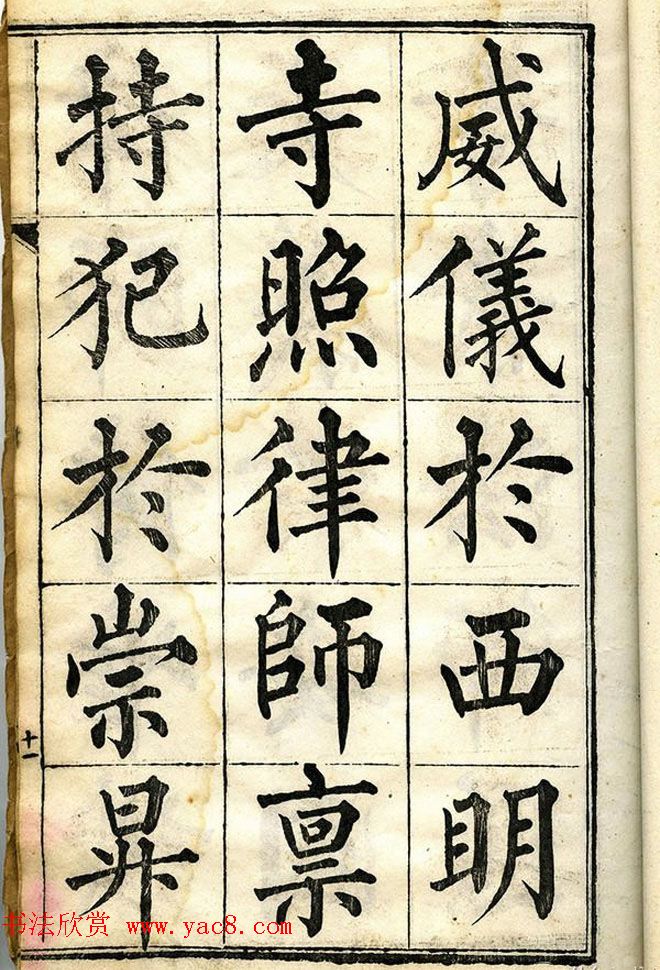 威儀於西明
寺照律師禀
持犯於崇昇
十一
书法欣赏 www.yac8.com